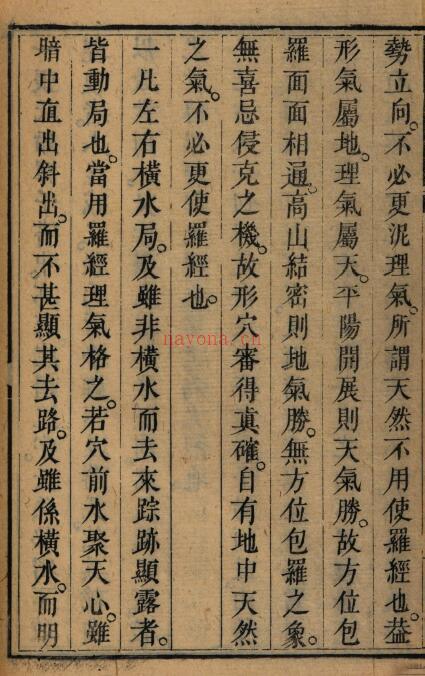 勢立向。不必更泥理氣。所謂天然不用使羅經也。葢
形氣屬地。理氣屬天。平陽開展則天氣勝。故方位包
羅面面相通。高山結密則地氣勝。無方位包羅之象。
無喜忌侵克之機。故形穴審得眞確。自有地中天然
之氣。不必更使羅經也。
一凡左右橫水局。及雖非橫水而去來踪跡顯露者。
皆動局也。當用羅經理氣格之。若穴前水聚天心。雖
暗中直出斜出。而不甚顯其去路。及雖係橫水。而明
nayona.cn